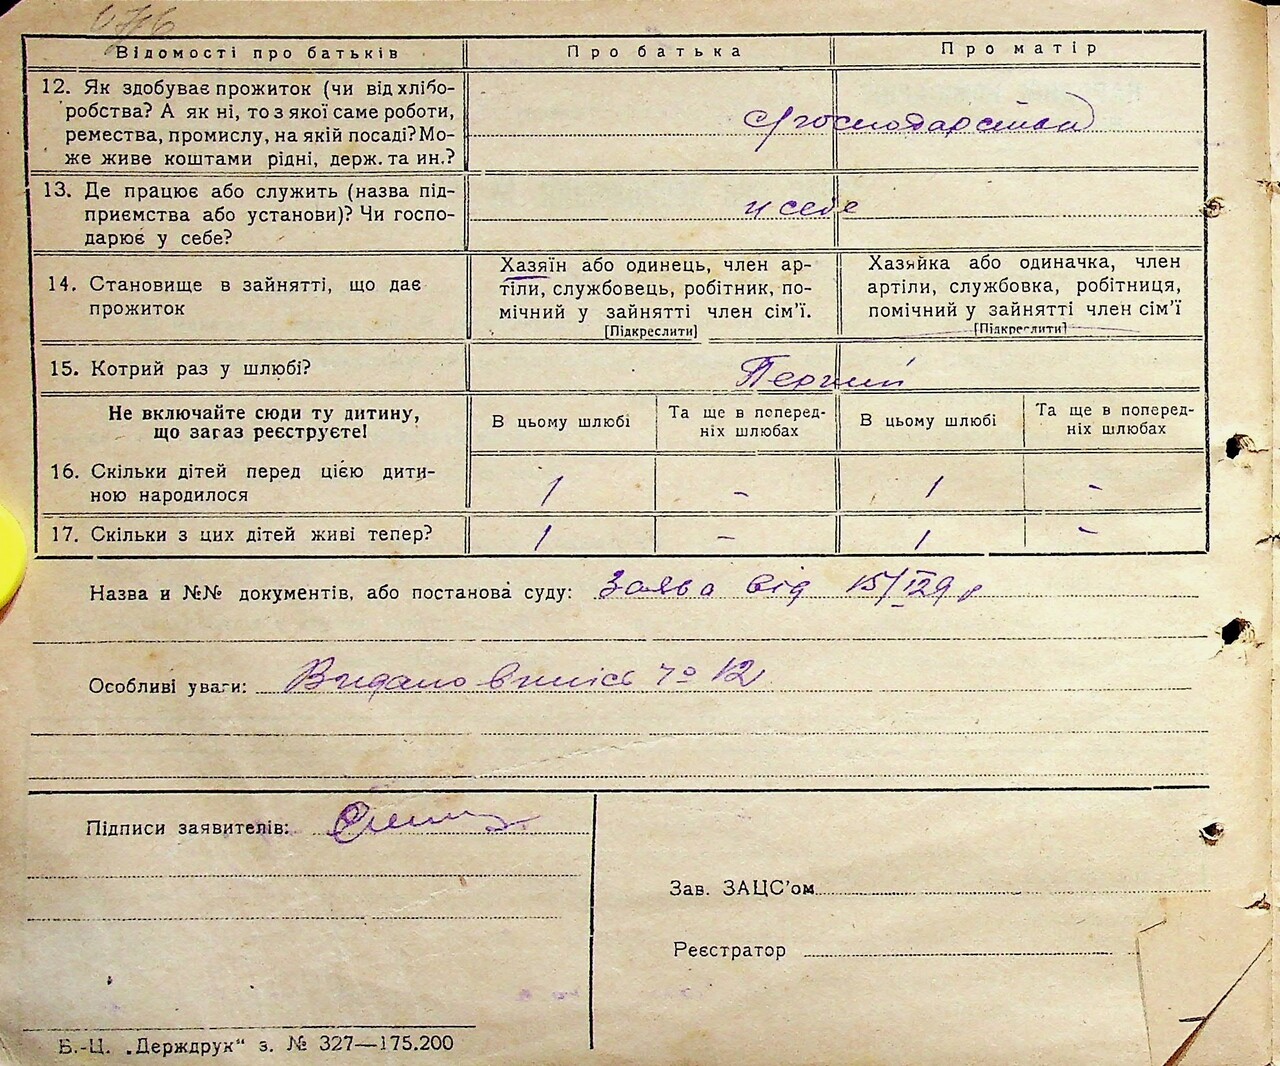 Відомості про батьків Про батька Про матір
12. Як здобуває прожиток (чи від хлібо-
робства? А як ні, то з якої саме роботи,
ремества, промислу, на якій посаді? Мо-
же живе коштами рідні, держ. та ин.?
с/господарством
13. Де працює або служить (назва під-
приємства або установи)? Чи госпо-
дарює у себе?
у себе
14. Становище в зайнятті, що дає
прожиток
Хазяїн або одинець, член ар-
тіли, службовець, робітник, по-
мічний у зайнятті член сім'ї.
[Підкреслити]
Хазяйка або одиначка, член
артіли, службовка, робітниця,
помічний у зайнятті член сім'ї
[Підкреслити]
15. Котрий раз у шлюбі? Перший
Не включайте сюди ту дитину,
що зараз реєструєте!
В цьому шлюбі
Та ще в поперед-
ніх шлюбах
В цьому шлюбі
Та ще в поперед-
ніх шлюбах
16. Скільки дітей перед цією дити-
ною народилося
1 - 1 -
17. Скільки з цих дітей живі тепер? 1 - 1 -
Назва и №№ документів, або постанова суду: Заява від 15/II 29 р
Особливі уваги: Видано випись № 12
Підписи заявителів:
Зав. ЗАЦС'ом
Реєстратор
Б.-Ц. „Держдрук“ з. № 327—175.200